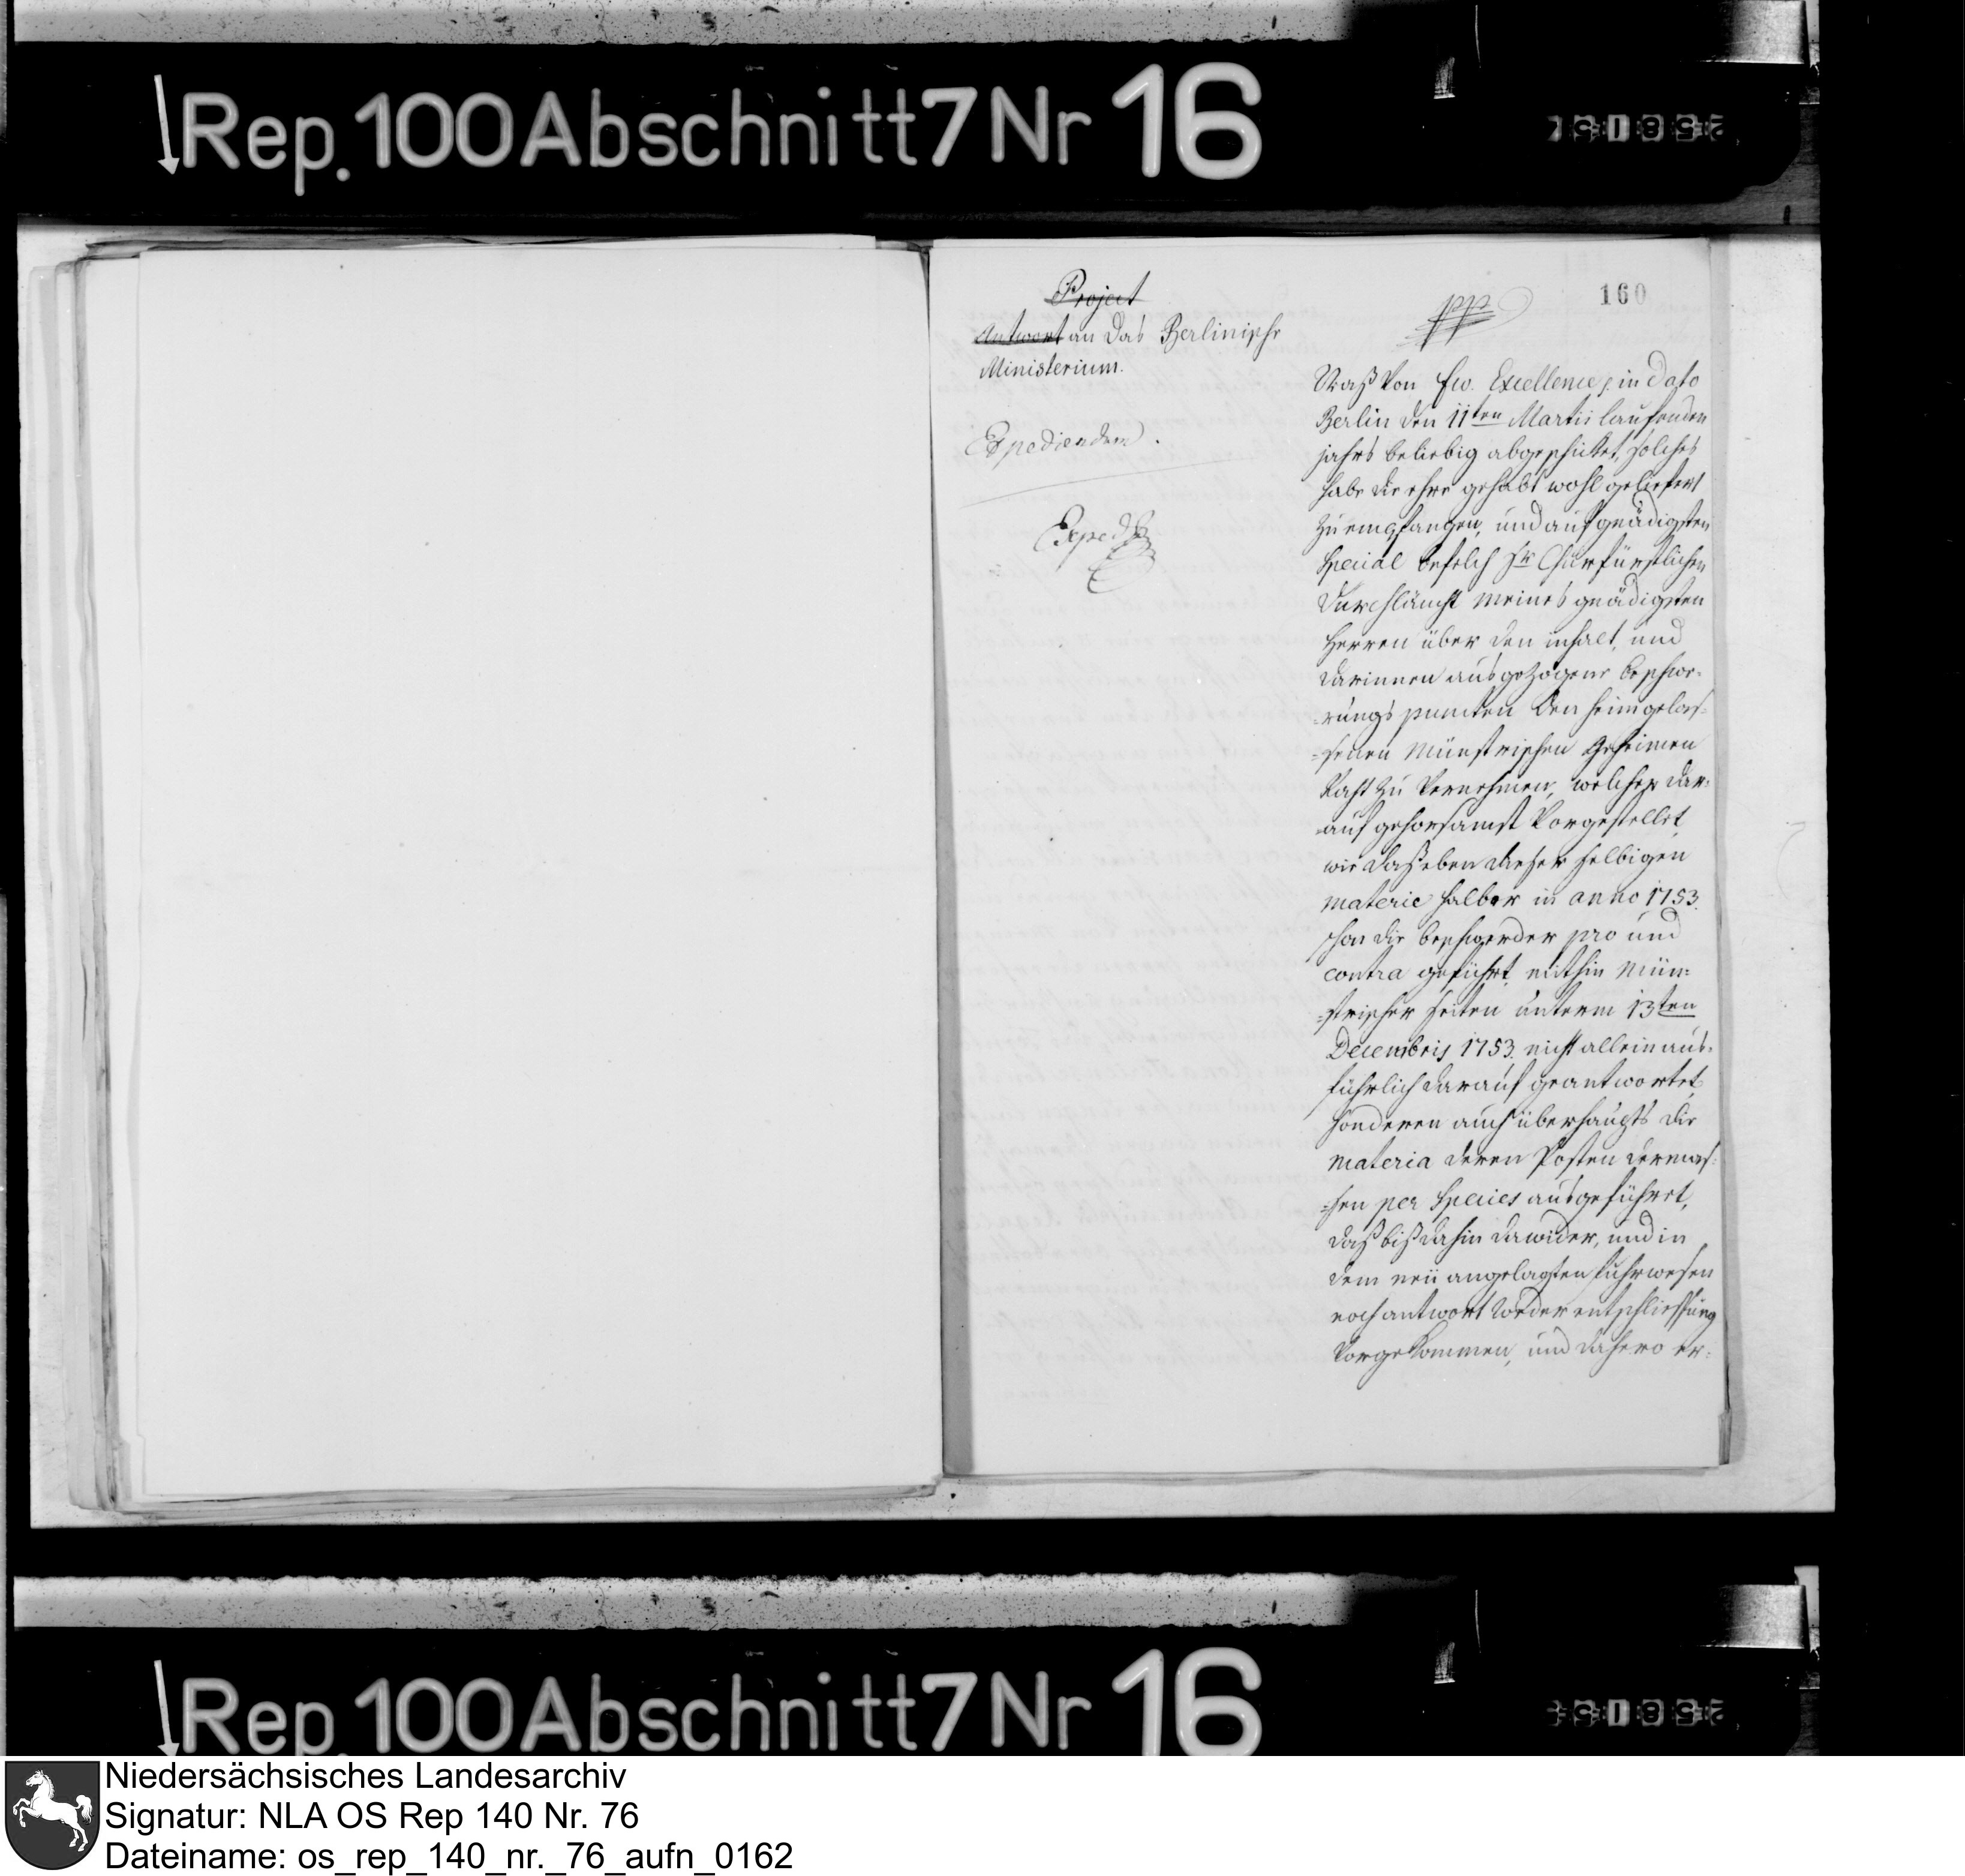 Rep. 100 Abschnitt 7 Nr 16
160
Project
Antwort an das Berlinische
Ministerium.
Expediendum.
Exped
pp
Waß von Ew. Excellence p. in dato
Berlin den 11ten Martii laufenden
jahrs beliebig abgeschicket, solches
habe die ehre gehabt wohl geliefert
zu empfangen, und auf gnädigsten
Special befelch Sr Churfürstlichen
Durchläucht meines gnädigsten
Herren über den inhalt, und
darinnen ausgezogene beschwe-
-rungs puncten den heimgelas-
-senen Münstrischen Geheimen
Raht zu vernehmen, welcher dar-
auf gehorsamst vorgestellet,
wie daß eben dieser selbigen
materie halber in anno 1753.
schon die beschwerden pro und
contra geführt, mithin Mün-
-strischer seiten unterm 13ten
Decembris 1753. nicht allein aus-
führlich darauf geantwortet,
sonderen auch überhaupts die
materia deren Posten dermas-
-sen per Species ausgeführet,
daß biß dahin dawider, und in
dem neü angelagten fuhrwesen
noch antwort weder entschliessung
vorgekommen, und dahero er-
Rep. 100 Abschnitt 7 Nr 16
Niedersächsisches Landesarchiv
Signatur: NLA OS Rep 140 Nr. 76
Dateiname: os_rep_140_nr._76_aufn_0162